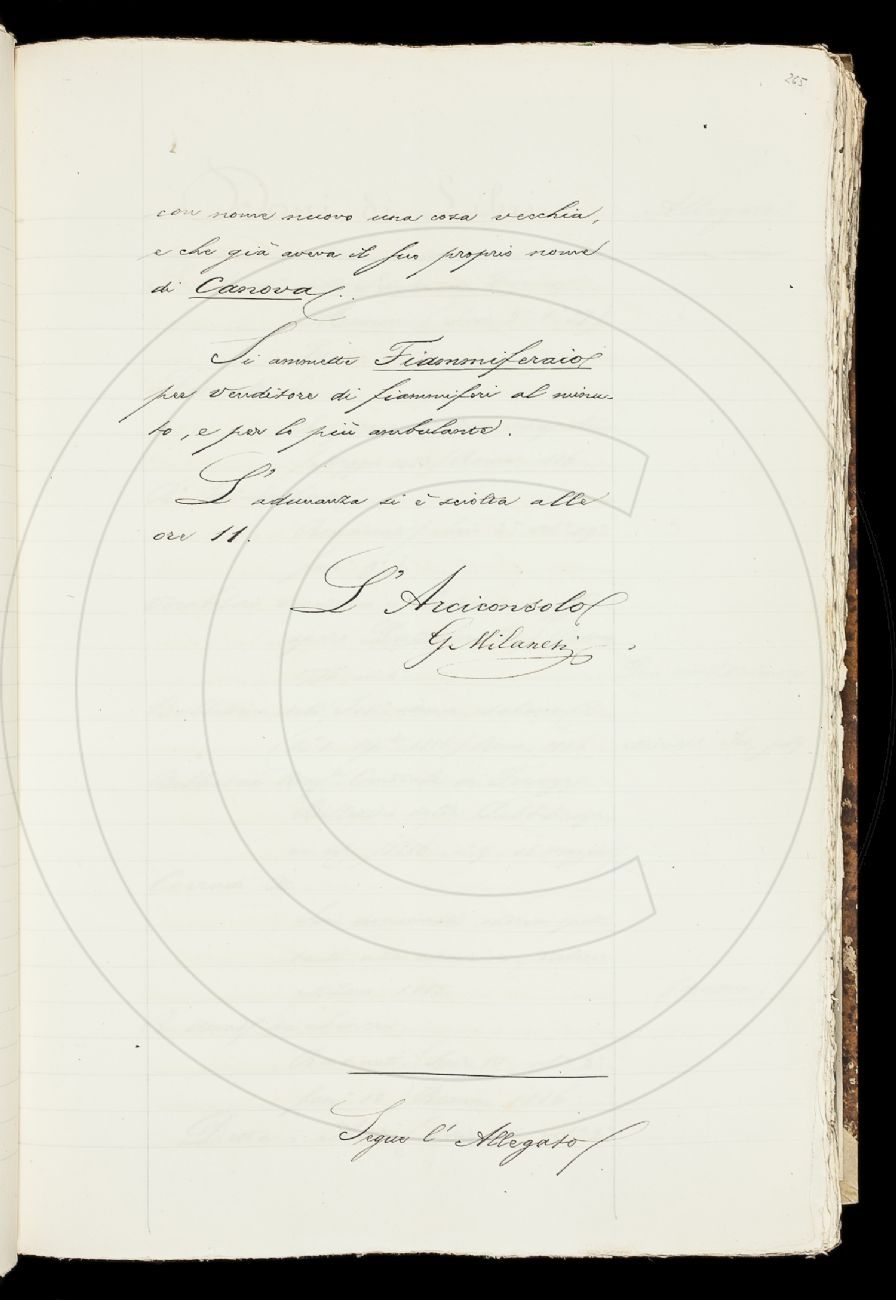 265
con nome nuovo una cosa vecchia,
e che già aveva il suo proprio nome
di Canova.
Si ammette Fiammiferaio
per Venditore di fiammiferi al minu-
to, e per lo più ambulante.
L'adunanza si è sciolta alle
ore 11.
L'Arciconsolo
G Milanesi
Segue l'Allegato